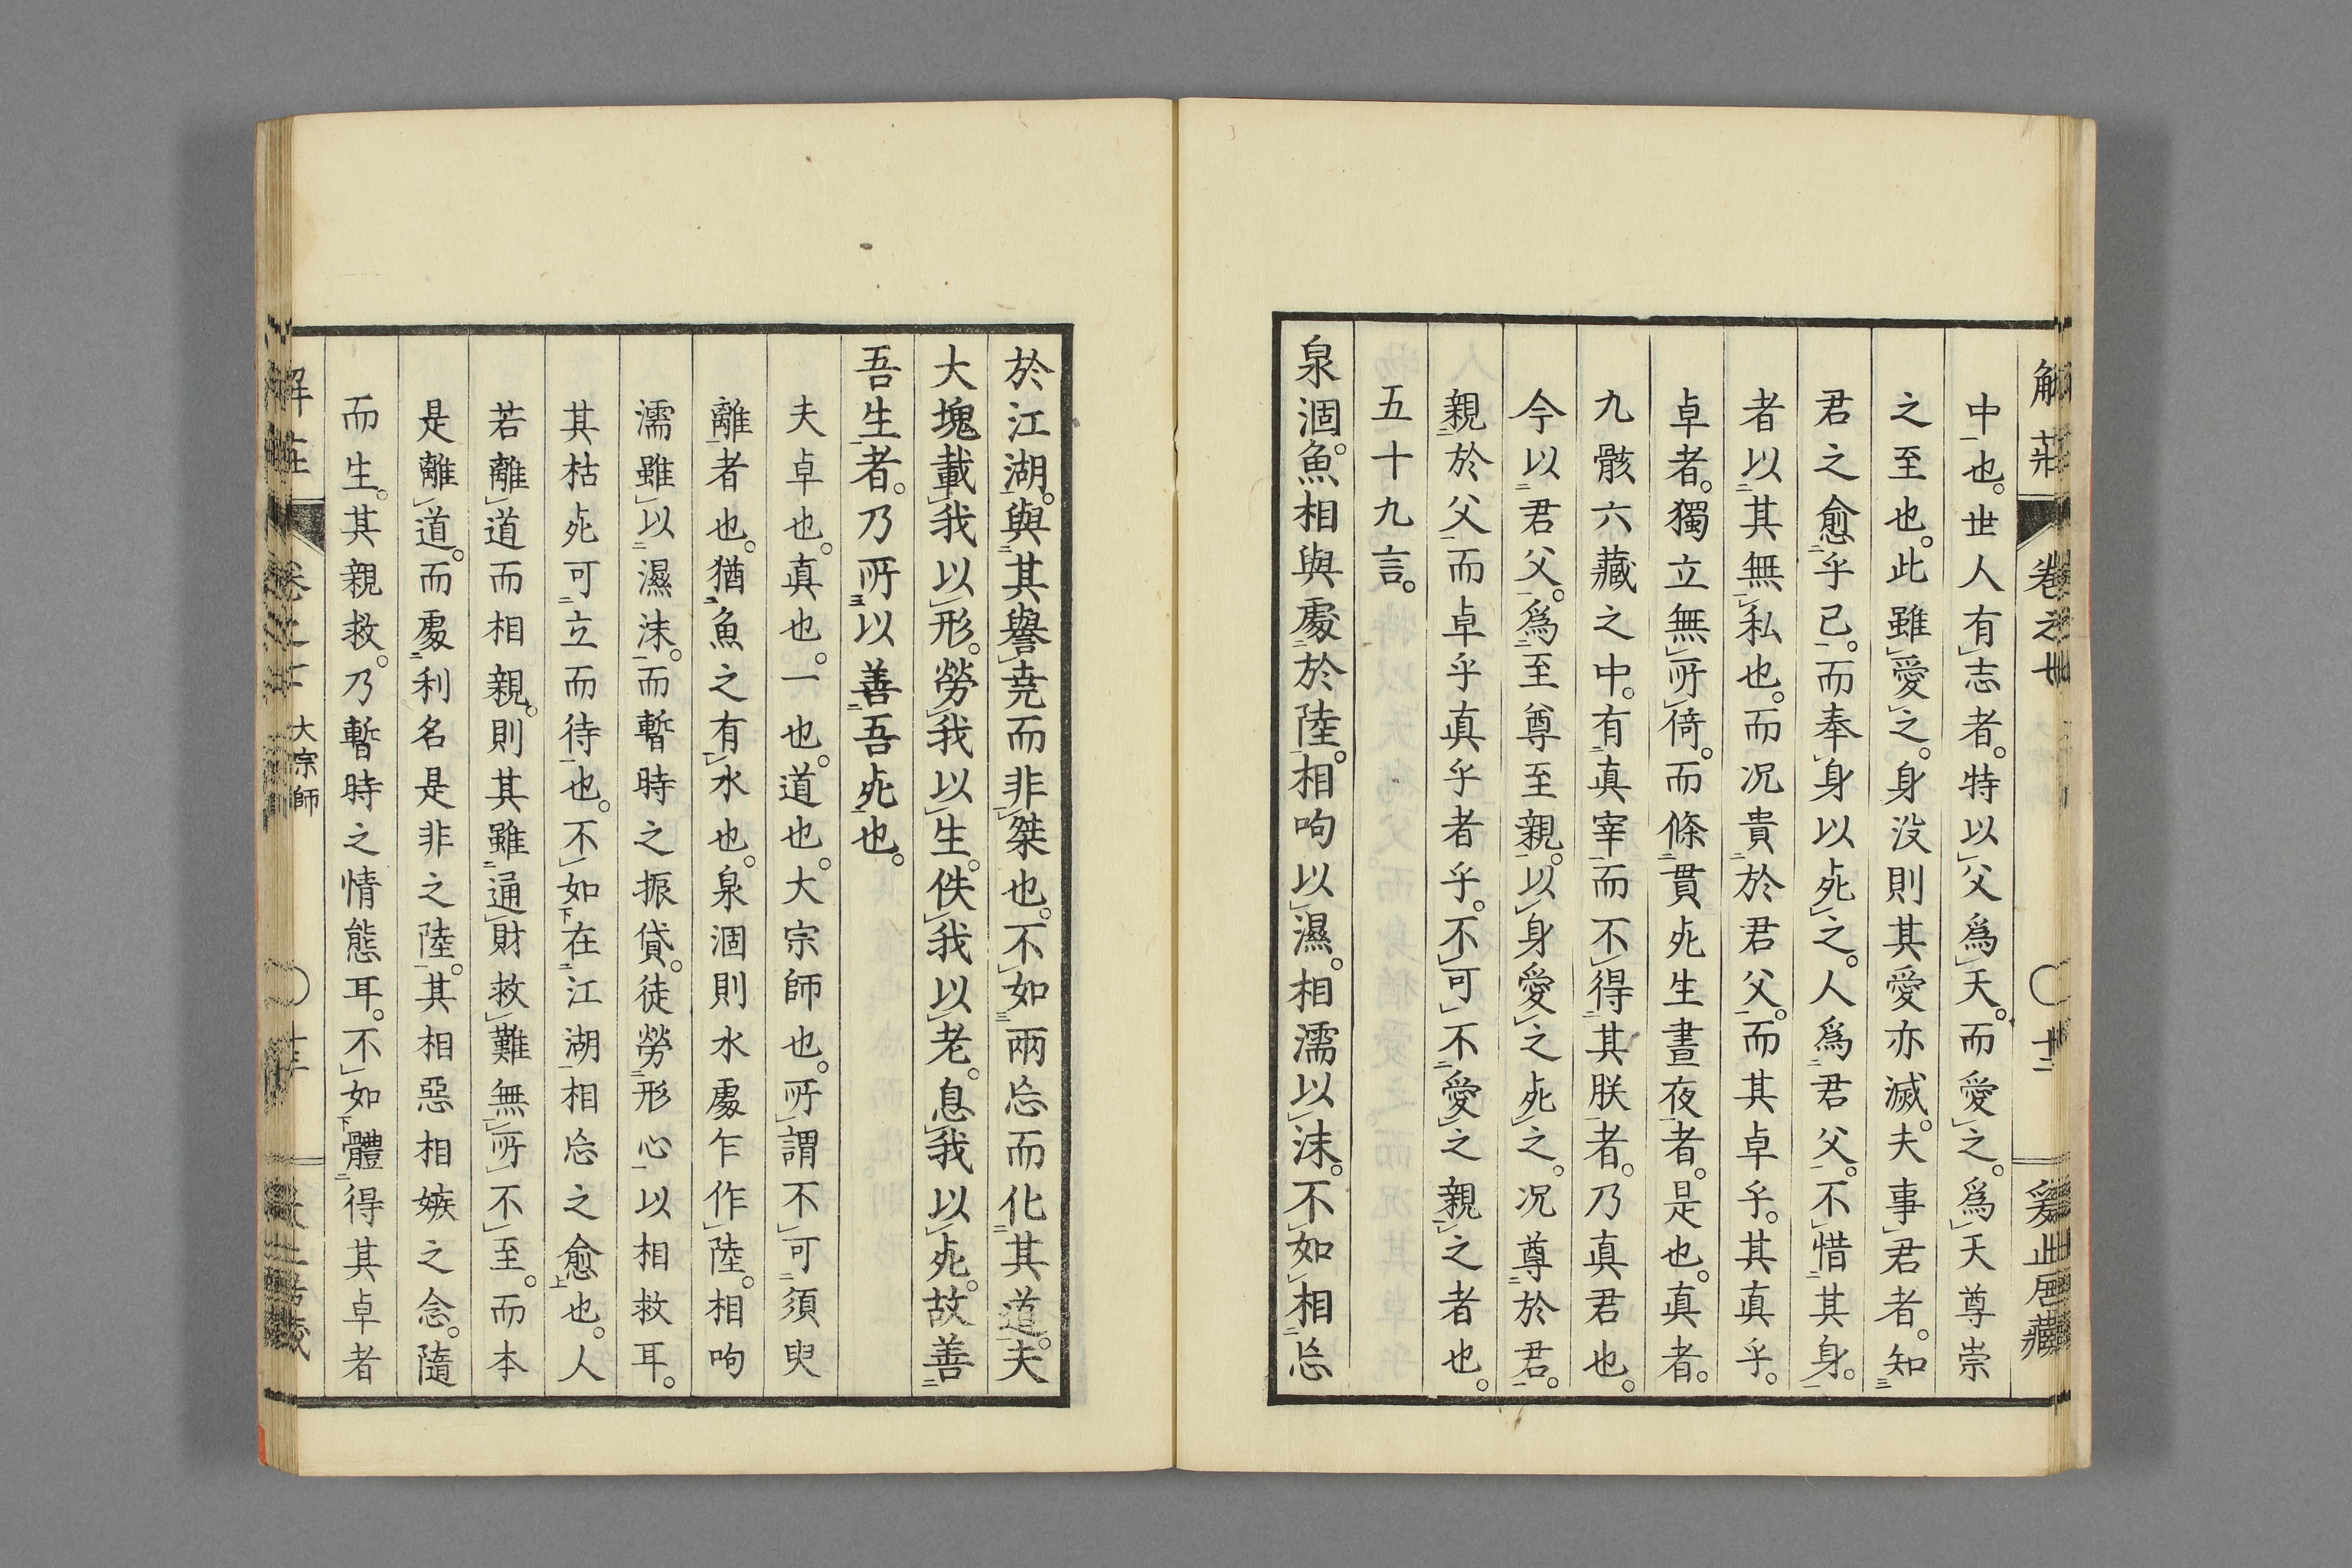 解莊 卷之廿 〇 十二 爰止居藏
中也。世人有志者。特以父爲天。而愛之。爲天尊崇
之至也。此雖愛之。身没則其愛亦滅。夫事君者。知
君之愈乎已。而奉身以死之。人爲君父。不惜其身。
者以其無私也。而况貴於君父。而其卓乎。其真乎。
卓者。獨立無所倚。而條貫死生晝夜者。是也。真者。
九骸六藏之中。有真宰而不得其朕者。乃真君也。
今以君父。爲至尊至親。以身愛之死之。况尊於君。
親於父而卓乎真乎者乎。不可不愛之親之者也。
五十九言。
泉涸。魚相與處於陸。相呴以濕。相濡以沫。不如相忘
於江湖。與其譽堯而非桀也。不如兩忘而化其道。夫
大塊載我以形。勞我以生。佚我以老。息我以死。故善
吾生者。乃所以善吾死也。
夫卓也。真也。一也。道也。大宗師也。所謂不可須臾
離者也。猶魚之有水也。泉涸則水處乍作陸。相呴
濡雖以濕沫。而暫時之振貸。徒勞形心以相救耳。
其枯死可立而待也。不如在江湖相忘之愈也。人
若離道而相親。則其雖通財救難無所不至。而本
是離道。而處利名是非之陸。其相惡相嫉之念。隨
而生。其親救。乃暫時之情態耳。不如體得其卓者
解莊 卷之 大宗師 〇